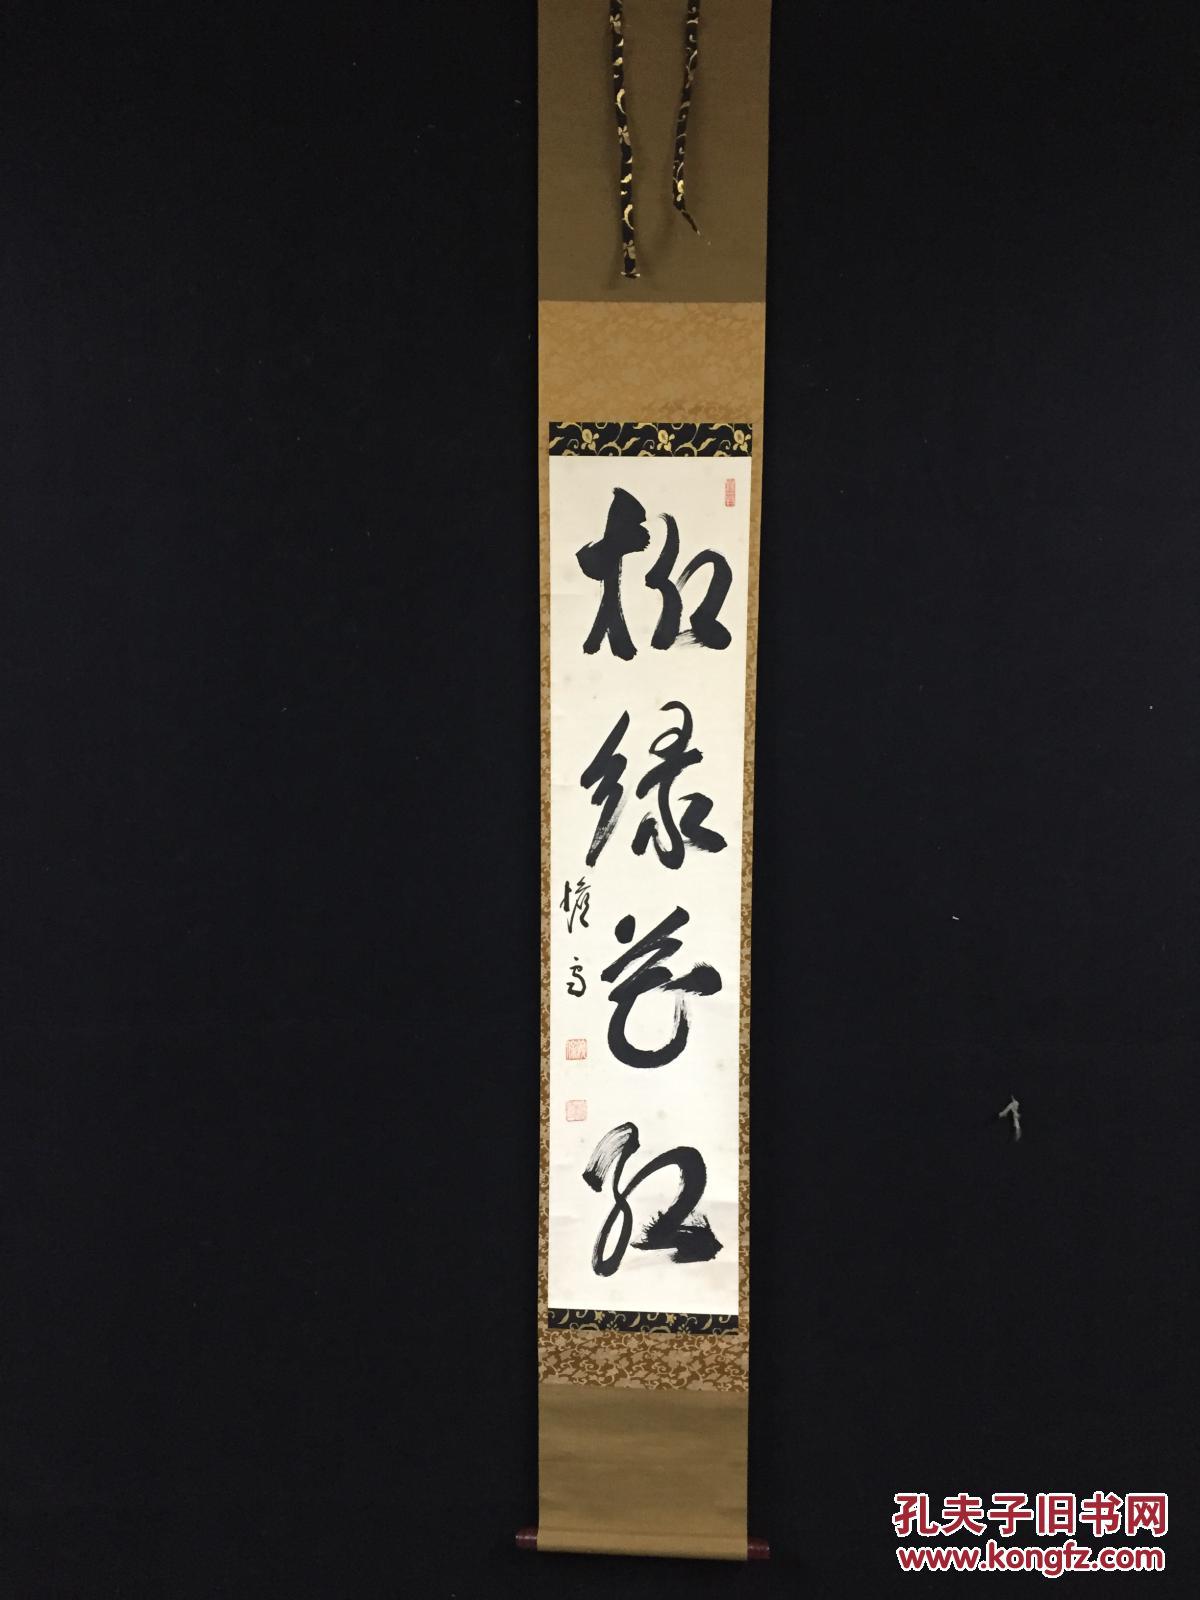 柳绿花红
孔夫子旧书网
www.kongfz.com